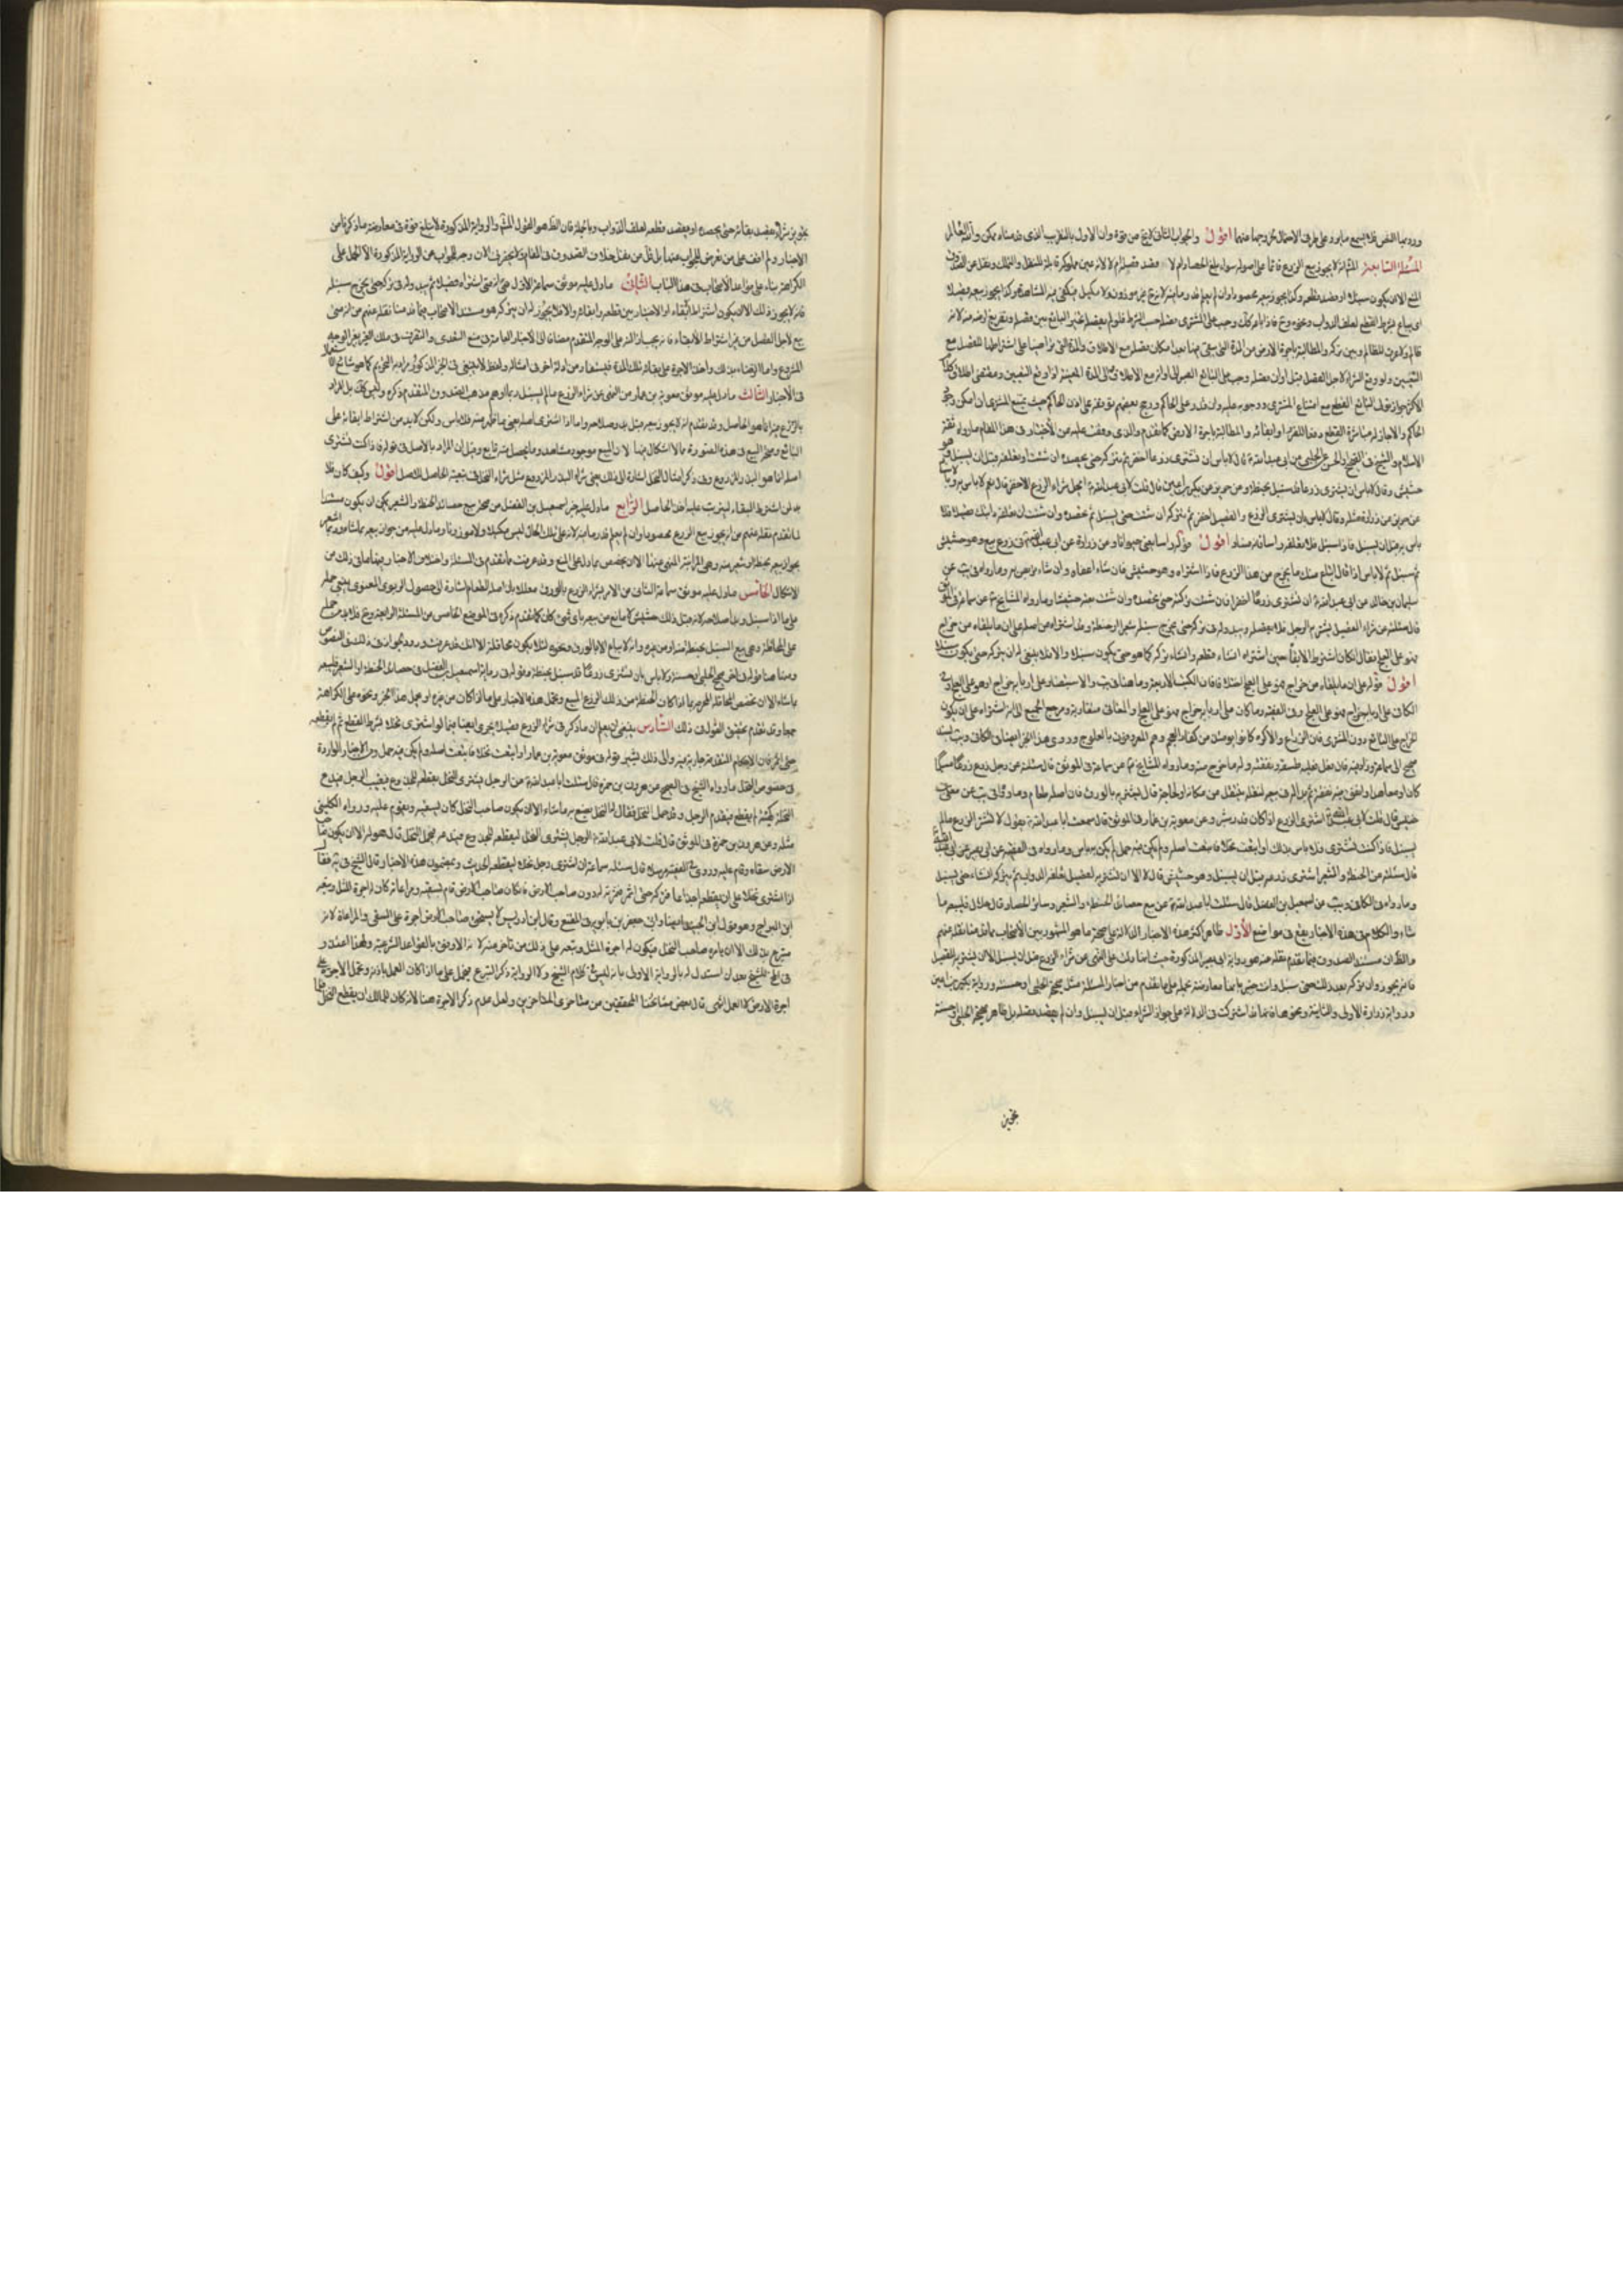 ورود هذا النص فلا يسمع ما يورد على طرفى الاحتمال اقول والجواب الثانى لا يخ من قوة وان الاول بالتقريب الذى قدمناه ممكن والله العالم
المسئلة السابعة المش انه لا يجوز بيع الزرع قائما على اصوله سواء بلغ الحصاد ام لا قصد قصله ام لا لانه عين مملوكة قابلة للنقل والتملك ونقل عن الصدوق
المنع الا ان يكون سنبلا او قصد قطعه وكذا يجوز بيعه محصودا وان لم يعلم قدر ما فيه لانه ح غير موزون ولا مكيل فيكفى فيه المشاهدة وكذا يجوز بيعه قصيلا
اى يباع بشرط القطع لعلف الدواب ونحوه وح فاذا باعه كك وجب على المشترى قصله حسب الشرط فلو لم يقصله تخير البايع بين قصله وتفريغ ارضه منه لانه
ظالم ولا حق للظالم وبين تركه والمطالبة باجرة الارض من المدة التى بقى فيها بعد امكان قصله مع الاطلاق والمدة التى تراضيا على اشتراطها للقصل مع
التعيين ولو وقع الشراء لاجل القصل قبل اوان قصله وجب على البايع الصبر الى اوانه مع الاطلاق والى المدة المعينة لو اوقع التعيين ومقتضى اطلاق كلام
الاكثر جواز تولى البايع القطع مع امتناع المشترى ووجوبه عليه وان قدر على الحاكم ورجح بعضهم توقفه على اذن الحاكم حيث يمتنع المشترى ان امكن وجود
الحاكم والا جاز له مباشرة القطع دفعا للضرر او ابقائه والمطالبة باجرة الارض كما تقدم والذى وقفت عليه من الاخبار فى هذا المقام ما رواه ثقة
الاسلام والشيخ فى الصحيح او الحسن عن الحلبى عن ابى عبد الله قال لا باس ان تشترى زرعا اخضر ثم تتركه حتى تحصده ان شئت او تعلفه قبل ان يسنبل وهو
حشيش وقال لا باس ان تشترى زرعا قد سنبل بحنطة وعن حريز عن بكير بن اعين قال قلت لابى عبد الله ايحل شراء الزرع الاخضر قال نعم لا باس به
عن حريز عن زرارة مثله وقال لا باس بان يشترى الزرع والقصيل اخضر ثم يتركه ان شئت حتى يسنبل ثم تحصده وان شئت ان تعلفه دابتك قصيلا فلا
باس به قبل ان يسنبل فاما اذا سنبل فلا تعلفه راسا فانه فساد اقول قوله راسا يعنى حيوانا وعن زرارة عن ابى جعفر فى زرع بيع وهو حشيش
ثم سنبل قال لا باس اذا قال ابتاع منك ما يخرج من هذا الزرع فاذا اشتراه وهو حشيش فان شاء اعفاه وان شاء تربص به وما رواه فى يب عن
سليمان بن خالد عن ابى عبد الله لا باس ان تشترى زرعا اخضر فان شئت تركته حتى تحصده وان شئت بعته حشيشا وما رواه المشايخ عن سماعة فى الموثق
قال سئلته عن شراء القصيل يشتريه الرجل فلا يقصله ويبدو له فى تركه حتى يخرج سنبله شعيرا او حنطة وقد اشتراه من اصله على ان ما يلقاه من خراج
فهو على العلج فقال ان كان اشترط الابقاء حين اشتراه ان شاء قطعه وان شاء تركه كما هو حتى يكون سنبلا والا فلا ينبغى له ان يتركه حتى يكون سنبلا
اقول قوله على ان ما يلقاه من خراج فهو على العلج
الكافى على اربابه خراج فهو على العلج وفى الفقيه وما كان على اربابه خراج فهو على العلج والمعانى متقاربة ومرجع الجميع الى انه اشتراه على ان يكون
الخراج على البايع دون المشترى فان الزراع والاكرة كانوا يومئذ من كفار العجم وهم المعروفون بالعلوج وروى هذا الخبر ايضا فى الكافى ويب بسند
صحيح الى سماعة وزاد فيه فان فعل فان عليه طسقه ونفقته وله ما خرج منه وما رواه المشايخ عن سماعة فى الموثق قال سئلته عن رجل زرع زرعا مسلما
كان او معاهدا وانفق فيه نفقة ثم بدا له فى بيعه لنقله ينتقل من مكانه او لحاجة قال يشتريه بالورق فان اصله طعام وما رواه فى يب عن معلى بن
خنيس قال قلت لابى عبد الله اشترى الزرع اذا كان قدر شبر وعن معوية بن عمار فى الموثق قال سمعت ابا عبد الله يقول لا تشتر الزرع ما لم
يسنبل فاذا كنت تشترى اصله فلا باس بذلك او ابتعت نخلا فابتعت اصله ولم يكن فيه حمل لم يكن به باس وما رواه فى الفقيه عن ابى بصير عن ابى عبد الله
قال سئلته عن الحنطة والشعير اشترى زرعه قبل ان يسنبل وهو حشيش قال لا الا ان تشتريه لقصيل تعلفه الدواب ثم تتركه ان شاء حتى يسنبل
وما رواه فى الكافى ويب عن اسمعيل بن الفضل قال سئلت ابا عبد الله عن بيع حصائد الحنطة والشعير وسائر الحصاد قال حلال فليبعه بما
شاء والكلام فى هذه الاخبار يقع فى مواضع الاول ظاهر اكثر هذه الاخبار الدلالة على صحة ما هو المشهور بين الاصحاب مما قدمنا نقله عنهم
والظ ان مستند الصدوق فيما تقدم نقله عنه هو رواية ابى بصير المذكورة حيث انها دلت على النهى عن شراء الزرع قبل ان يسنبل الا ان يشتريه للقصيل
فانه يجوز وان تركه بعد ذلك حتى سنبل وانت خبير بانها معارضة بجملة ما تقدم من اخبار المسئلة مثل صحيحة الحلبى او حسنته ورواية بكير بن اعين
ورواية زرارة الاولى والثانية ونحوها فانها قد اشتركت فى الدلالة على جواز الشراء قبل ان يسنبل وان لم يقصد قصله بل ظاهر صحيحة الحلبى او حسنته
تجويز شرائه بقصد بقائه حتى يحصده او بقصد قطعه لعلف الدواب وبالجملة فان الظ هو القول المش والرواية المذكورة لا تبلغ قوة فى معارضة ما ذكرناه من
الاخبار ولم اقف على من تعرض للجواب عنها بل قل من نقل خلاف الصدوق فى المقام ولا يحضرنى الان وجه للجواب عن الرواية المذكورة الا الحمل على
الكراهة بناء على قواعد الاصحاب فى هذا الباب الثانى ما دل عليه موثق سماعة الاول متى اشتراه قصيلا ثم يبدو له فى تركه حتى يخرج سنبله
فانه لا يجوز ذلك الا ان يكون اشترط الابقاء او الاختيار بين قطعه وابقائه والا فلا يجوز له ان يتركه هو مستند الاصحاب فيما قدمنا نقله عنهم من انه متى
بيع لاجل القصل من غير اشتراط الابقاء فانه يجب ازالته على الوجه المتقدم مضافا الى الاخبار العامة فى منع التعدى والتصرف فى ملك الغير بغير الوجه
المشروع واما الرضا بذلك واخذ الاجرة على بقائه تلك المدة فيستفاد من ادلة اخرى ولفظ لا ينبغى فى الخبر المذكور يراد به التحريم كما هو شائع
فى الاخبار الثالث ما دل عليه موثق معوية بن عمار من النهى عن شراء الزرع ما لم يسنبل ربما اوهم مذهب الصدوق المتقدم ذكره وليس كك بل المراد
بالزرع فيه انما هو الحاصل وقد تقدم انه لا يجوز بيعه قبل بدو صلاحه واما اذا اشترى اصله يعنى ما ظهر منه فلا باس ولكن لا بد من اشتراط ابقائه على
البايع وصحة البيع فى هذه الصورة مما لا اشكال فيها لان المبيع موجود مشاهد وما يحصل منه تابع وقيل ان المراد بالاصل فى قوله فاذا كنت تشترى
اصله انما هو البذر المزروع وفى ذكر امثال النخل اشارة الى ذلك يعنى شراء البذر المزروع مثل شراء النخل فى تبعية الحاصل للاصل اقول وكيف كان فلا
بد من اشتراط البقاء ليترتب عليه اخذ الحاصل الرابع ما دل عليه خبر اسمعيل بن الفضل من صحة بيع حصائد الحنطة والشعير يمكن ان يكون مستندا
لما تقدم نقله عنهم من انه يجوز بيع الزرع محصودا وان لم يعلم قدر ما فيه لانه على تلك الحال ليس مكيلا ولا موزونا وما دل عليه من جواز بيعه بما شاء وربما اشعر
بجواز بيعه بحنطة او شعير منه وهى المزابنة المنهى عنها الا ان يخصص بما دل على المنع وقد عرفت ما تقدم فى المسئلة واختلاف الاخبار فيها ما فى ذلك من
الاشكال الخامس ما دل عليه موثق سماعة الثانى من الامر بشراء الزرع بالورق معللا بان اصله الطعام اشارة الى حصول الربوى المعنوى ينبغى حمله
على ما اذا سنبل وبدا صلاحه لانه قبل ذلك حشيش لا مانع من بيعه باى شىء كان كما تقدم ذكره فى الموضع الخامس من المسئلة الرابعة وح فلا بد من حمله
على المحاقلة وهى بيع السنبل بحنطة منه او من غيره وانه لا يباع الا بالورق ونحوه لئلا يكون محاقلة الا انك قد عرفت ورود الجواز فى ذلك فى بعض النصوص
ومنها هنا قوله فى اخر صحيح الحلبى او حسنته ولا باس بان تشترى زرعا قد سنبل بحنطة وقوله فى رواية اسمعيل بن الفضل فى حصائد الحنطة او الشعير فليبعه
بما شاء الا ان تختص المحاقلة المحرمة بما اذا كان الحنطة من ذلك الزرع المبيع وتحمل هذه الاخبار على ما اذا كان من غيره او يحمل هذا الخبر ونحوه على الكراهة
جمعا وقد تقدم تحقيق القول فى ذلك السادس ينبغى ان يعلم ان ما ذكر فى شراء الزرع قصيلا يجرى ايضا فيما لو اشترى نخلا بشرط القطع ثم لم يقطعه
حتى اثمر فان الاحكام المتقدمة جارية فيه والى ذلك يشير قوله فى موثق معوية بن عمار او ابتعت نخلا فابتعت اصله ولم يكن فيه حمل ومن الاخبار الواردة
فى خصوص النخل ما رواه الشيخ فى الصحيح عن هرون بن حمزة قال سئلت ابا عبد الله عن الرجل يشترى النخل يقطعه للجذوع فيغيب الرجل فيدع
النخل كهيئته لم يقطع فيقدم الرجل وقد حمل النخل فقال له الحمل يصنع به ما شاء الا ان يكون صاحب النخل كان يسقيه ويقوم عليه ورواه الكلينى
مثله وعن هرون بن حمزة فى الموثق قال قلت لابى عبد الله الرجل يشترى النخل ليقطعه للجذوع فيدعه فيحمل النخل قال هو له الا ان يكون صاحب
الارض سقاه وقام عليه وروى فى الفقيه مرسلا قال سئله سماعة ان اشترى رجل نخلا ليقطعه الحديث وبمضمون هذه الاخبار قال الشيخ فى يه فقال
اذا اشترى نخلا على ان يقطعه اجذاعا فتركه حتى اثمر فثمرته له دون صاحب الارض فان كان صاحب الارض قام بسقيه ومراعاته كان له اجرة المثل وتبعه
ابن البراج وهو قول ابن الجنيد ايضا وابى جعفر بن بابويه فى المقنع وقال ابن ادريس لا يستحق صاحب الارض اجرة على السقى والمراعاة لانه
متبرع بذلك الا ان يامره صاحب النخل فيكون له اجرة المثل وتبعه على ذلك من تاخر عنه لانه الاوفق بالقواعد الشرعية ولهذا اعتذر
فى المخ للشيخ بعد ان استدل له بالرواية الاولى بانه ليس فى كلام الشيخ ولا الرواية ذكر التبرع فيحمل على ما اذا كان العمل باذنه وتحمل الاجرة على
اجرة الارض لا العمل انتهى قال بعض مشائخنا المحققين من متاخرى المتاخرين ولعل عدم ذكر الاجرة هنا لانه كان للمالك ان يقطع النخل
تجويز